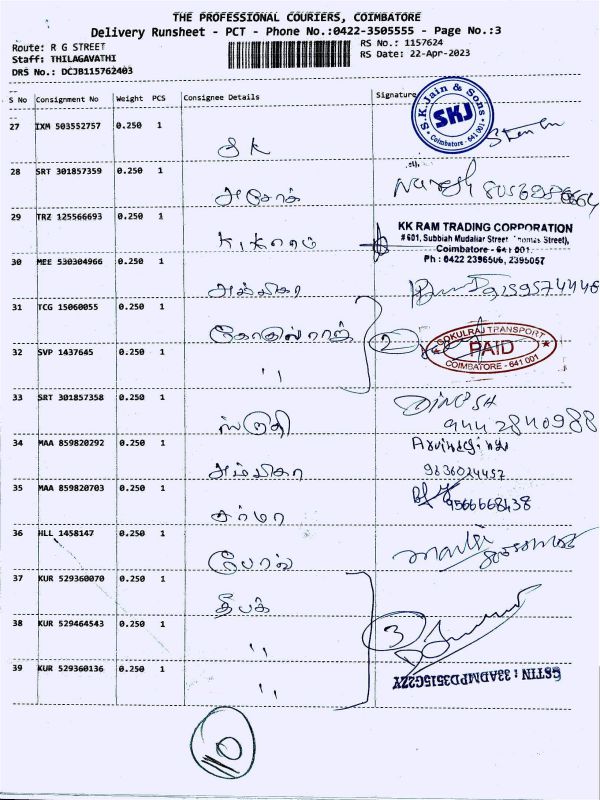 THE PROFESSIONAL COURIERS, COIMBATORE
Delivery Runsheet - PCT - Phone No.:0422-3505555 - Page No.:3
Route: R G STREET
Staff: THILAGAVATHI
DRS No.: DCJB115762403
RS No.: 1157624
RS Date: 22-Apr-2023
S No Consignment No Weight PCS Consignee Details Signature
S.K.Jain & Sons
SKJ
Coimbatore - 641 001
27 IXM 503552757 0.250 1
SK
28 SRT 301857359 0.250 1
அசோக் Naresh
29 TRZ 125566693 0.250 1
KK RAM TRADING CORPORATION
#601, Subbiah Mudaliar Street (Thomas Street),
Coimbatore - 641 001.
Ph : 0422 2396506, 2395057
30 MEE 530304966 0.250 1
அம்பிகா
31 TCG 15060055 0.250 1
கோகுல்ராஜ் 2
GOKULRAJ TRANSPORT
PAID
COIMBATORE - 641 001
32 SVP 1437645 0.250 1
''
33 SRT 301857358 0.250 1
ஸ்ருதி DINESH
9442840988
34 MAA 859820292 0.250 1
அம்பிகா
35 MAA 859820703 0.250 1
சர்மா 9566668438
36 HLL 1458147 0.250 1
போல்
37 KUR 529360070 0.250 1
தீபக்
38 KUR 529464543 0.250 1
'' 3
39 KUR 529360136 0.250 1
''
GSTIN : 33ADMPD3515G2ZY
10